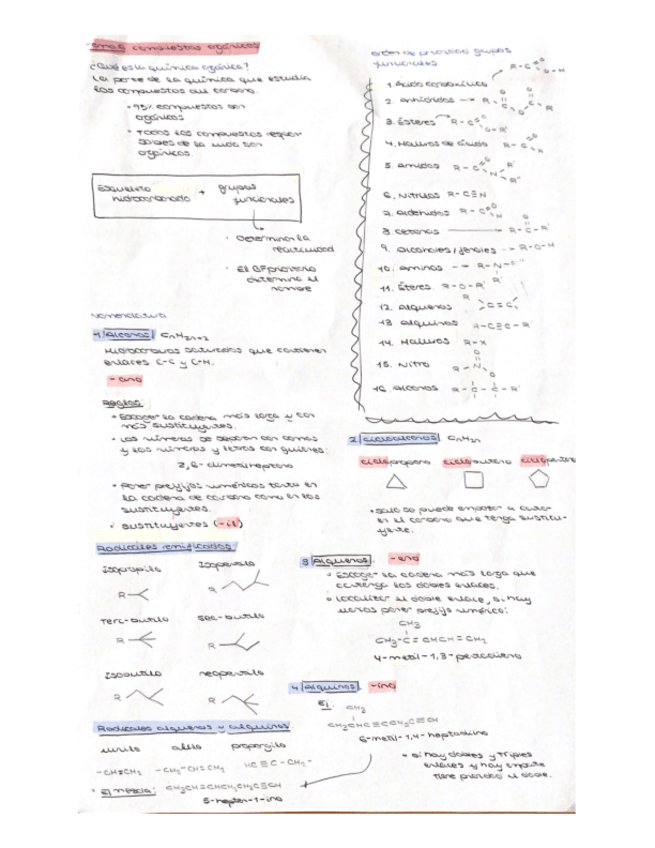 Tema 6 compuestos orgánicos
¿Qué es la química orgánica?
La parte de la química que estudia
los compuestos del carbono.
• 95% compuestos son
orgánicos
• Todos los compuestos respon
sables de la vida son
orgánicos.
Esqueleto
hidrocarbonado + grupos
funcionales
• Determinan la
reactividad
• El GF prioritario
determina el
nombre
Nomenclatura
1 Alcanos CnH2n+2
Hidrocarburos saturados que contienen
enlaces C-C y C-H.
- ano
Reglas:
• Escoger la cadena más larga y con
más sustituyentes.
• Los números se separan con comas
y los números y letras con guiones:
2,6- dimetilheptano
• Poner prefijos numéricos tanto en
la cadena de carbono como en los
sustituyentes.
• sustituyentes (-il)
Radicales ramificados
Isopropilo Isopentilo
R
terc-butilo sec-butilo
R R
Isobutilo neopentilo
R R
Radicales alquenos y alquinos.
vinilo alilo propargilo
-CH=CH2 -CH2-CH=CH2 HC≡C-CH2-
• Ej mezcla: CH2CH=CHCH2CH2C≡CH
5-hepten-1-ino
orden de prioridad grupos
funcionales
1. Ácido carboxílico
2. anhídridos
3. Ésteres
4. Haluros de ácido
5. amidas
6. Nitrilos R-C≡N
7. aldehídos
8. cetonas
9. alcoholes/fenoles → R-O-H
10. aminas
11. Éteres R-O-R'
12. alquenos
13 alquinos R-C≡C-R
14. Haluros R-X
15. Nitro
16. alcanos
2 cicloalcanos CnH2n
ciclopropano ciclobutano ciclopentano
• solo se puede empezar a contar
en el carbono que tenga sustitu-
yente.
3 Alquenos. - eno
• Escoger la cadena más larga que
contenga los dobles enlaces.
• Localizar el doble enlace, si hay
varios poner prefijo numérico:
CH3
CH3-C=CHCH=CH2
4-metil-1,3-pentadieno
4 Alquinos. -ino
Ej:
CH3
CH3CHC≡CCH2C≡CH
6-metil-1,4-heptadiino
• si hay dobles y triples
enlaces y hay empate
tiene prioridad el doble.